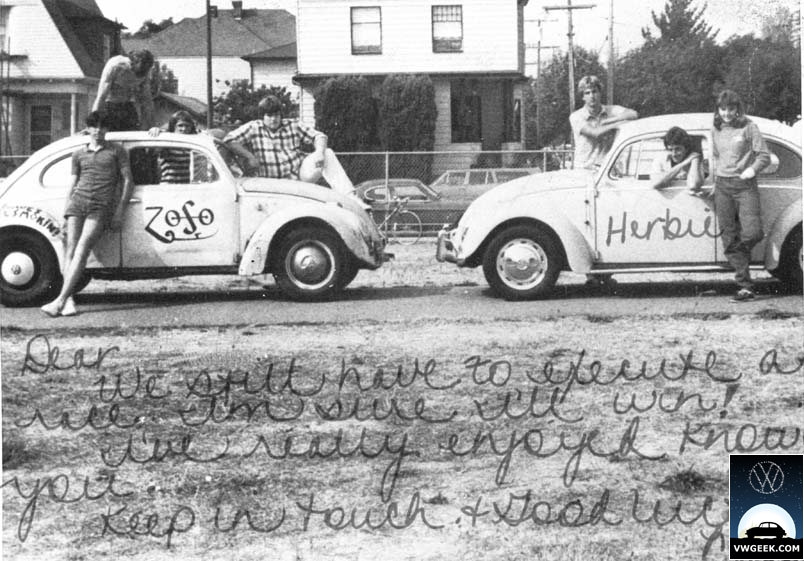 Zoso
Herbie
Dear
We still have to execute a
race. I'm sure I'll win!
I've really enjoyed know
you.
Keep in touch. & Good luck
VWGEEK.COM